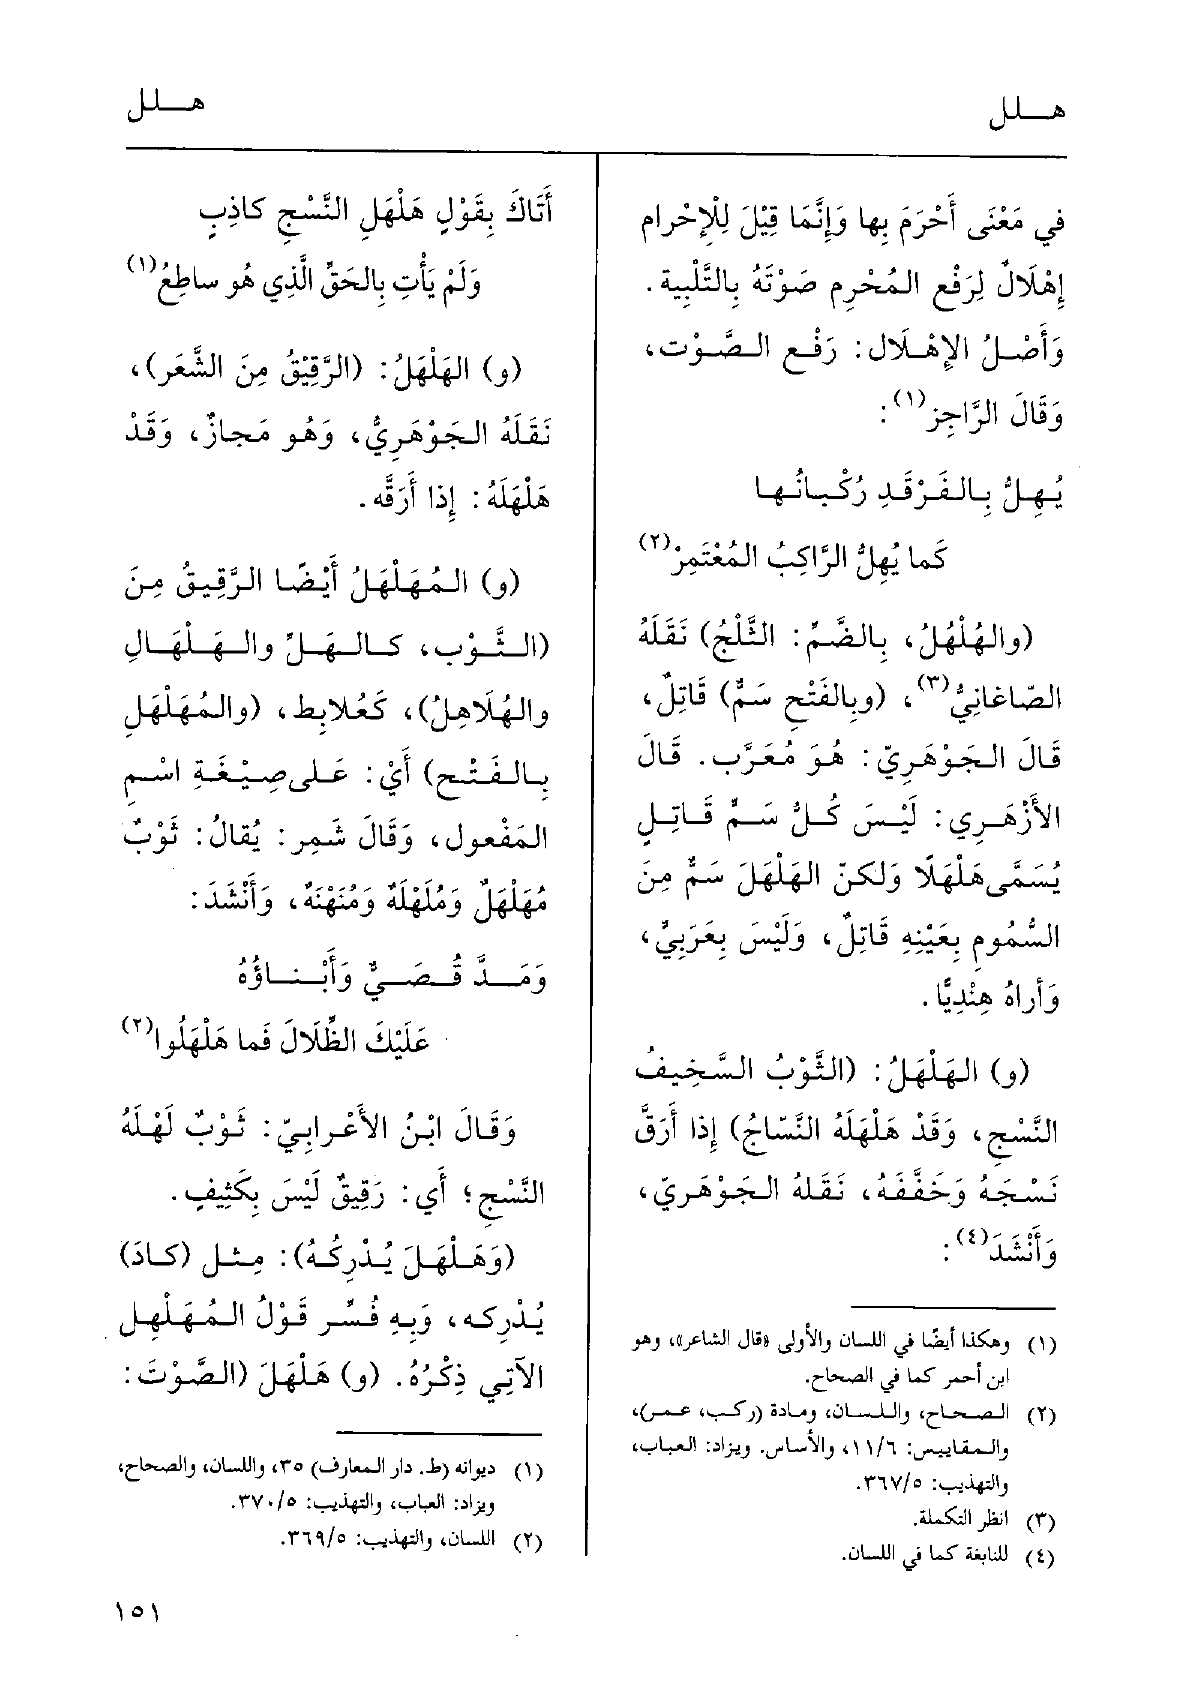 هـلل
هـلل
في مَعْنَى أَحْرَمَ بِها وَإِنَّمَا قِيْلَ لِلْإِحْرام
إِهْلَالٌ لِرَفْعِ المُحْرِمِ صَوْتَهُ بِالتَّلْبِية.
وَأَصْلُ الإِهْلَالِ: رَفْع الصَّوْت،
وَقَالَ الرَّاجِز(١):
يُهِلُّ بِالفَرْقَدِ رُكْبانُها
كَما يُهِلُّ الرَّاكِبُ المُعْتَمِرْ(٢)
(والهُلْهُلُ، بِالضَّمِّ: الثَّلْجُ) نَقَلَهُ
الصّاغانِيُّ(٣)، (وبِالفَتْحِ سَمٌّ) قَاتِلٌ،
قَالَ الجَوْهَرِيّ: هُوَ مُعَرَّب. قَالَ
الأَزْهَرِي: لَيْسَ كُلُّ سَمٍّ قَاتِلٍ
يُسَمَّى هَلْهَلًا وَلكنّ الهَلْهَلَ سَمٌّ مِنَ
السُّمُومِ بِعَيْنِهِ قَاتِلٌ، وَلَيْسَ بِعَرَبِيٍّ،
وَأراهُ هِنْدِيًّا.
(و) الهَلْهَلُ: (الثَّوْبُ السَّخِيفُ
النَّسْجِ، وَقَدْ هَلْهَلَهُ النَّسّاجُ) إِذَا أَرَقَّ
نَسْجَهُ وَخَفَّفَهُ، نَقَلَهُ الجَوْهَرِيّ،
وَأَنْشَدَ(٤):
(١) وهكذا أيضًا في اللسان والأولى «قال الشاعر»، وهو
ابن أحمر كما في الصحاح.
(٢) الصحاح، واللسان، ومادة (ركب، عمر)،
والمقاييس: ١١/٦، والأساس. ويزاد: العباب،
والتهذيب: ٣٦٧/٥.
(٣) انظر التكملة.
(٤) للنابغة كما في اللسان.
أَتَاكَ بِقَوْلٍ هَلْهَلِ النَّسْجِ كاذِبٍ
وَلَمْ يَأْتِ بِالحَقِّ الَّذِي هُو ساطِعُ(١)
(و) الهَلْهَلُ: (الرَّقِيْقُ مِنَ الشَّعَر)،
نَقَلَهُ الجَوْهَرِيُّ، وَهُو مَجازٌ، وَقَدْ
هَلْهَلَهُ: إِذا أَرَقَّه.
(و) المُهَلْهَلُ أَيْضًا الرَّقِيقُ مِنَ
(الثَّوْب، كالهَلِّ والهَلْهَالِ
والهُلَاهِلُ)، كَعُلابِط، (والمُهَلْهَلِ
بِالفَتْح) أَيْ: عَلى صِيْغَةِ اسْمِ
المَفْعول، وَقَالَ شَمِر: يُقالُ: ثَوْبٌ
مُهَلْهَلٌ وَمُلَهْلَهٌ وَمُنَهْنَهٌ، وَأَنْشَدَ:
وَمَدَّ قُصَيٌّ وَأَبْناؤُهُ
عَلَيْكَ الظِّلَالَ فَما هَلْهَلُوا(٢)
وَقَالَ ابْنُ الأَعْرابِيّ: ثَوْبٌ لَهْلَهُ
النَّسْجِ؛ أَي: رَقِيقٌ لَيْسَ بِكَثِيفٍ.
(وَهَلْهَلَ يُدْرِكُهُ): مِثل (كادَ)
يُدْرِكه، وَبِهِ فُسِّر قَوْلُ المُهَلْهِل
الآتِي ذِكْرُهُ. (و) هَلْهَلَ (الصَّوْتَ:
(١) ديوانه (ط. دار المعارف) ٣٥، واللسان، والصحاح،
ويزاد: العباب، والتهذيب: ٣٧٠/٥.
(٢) اللسان، والتهذيب: ٣٦٩/٥.
١٥١